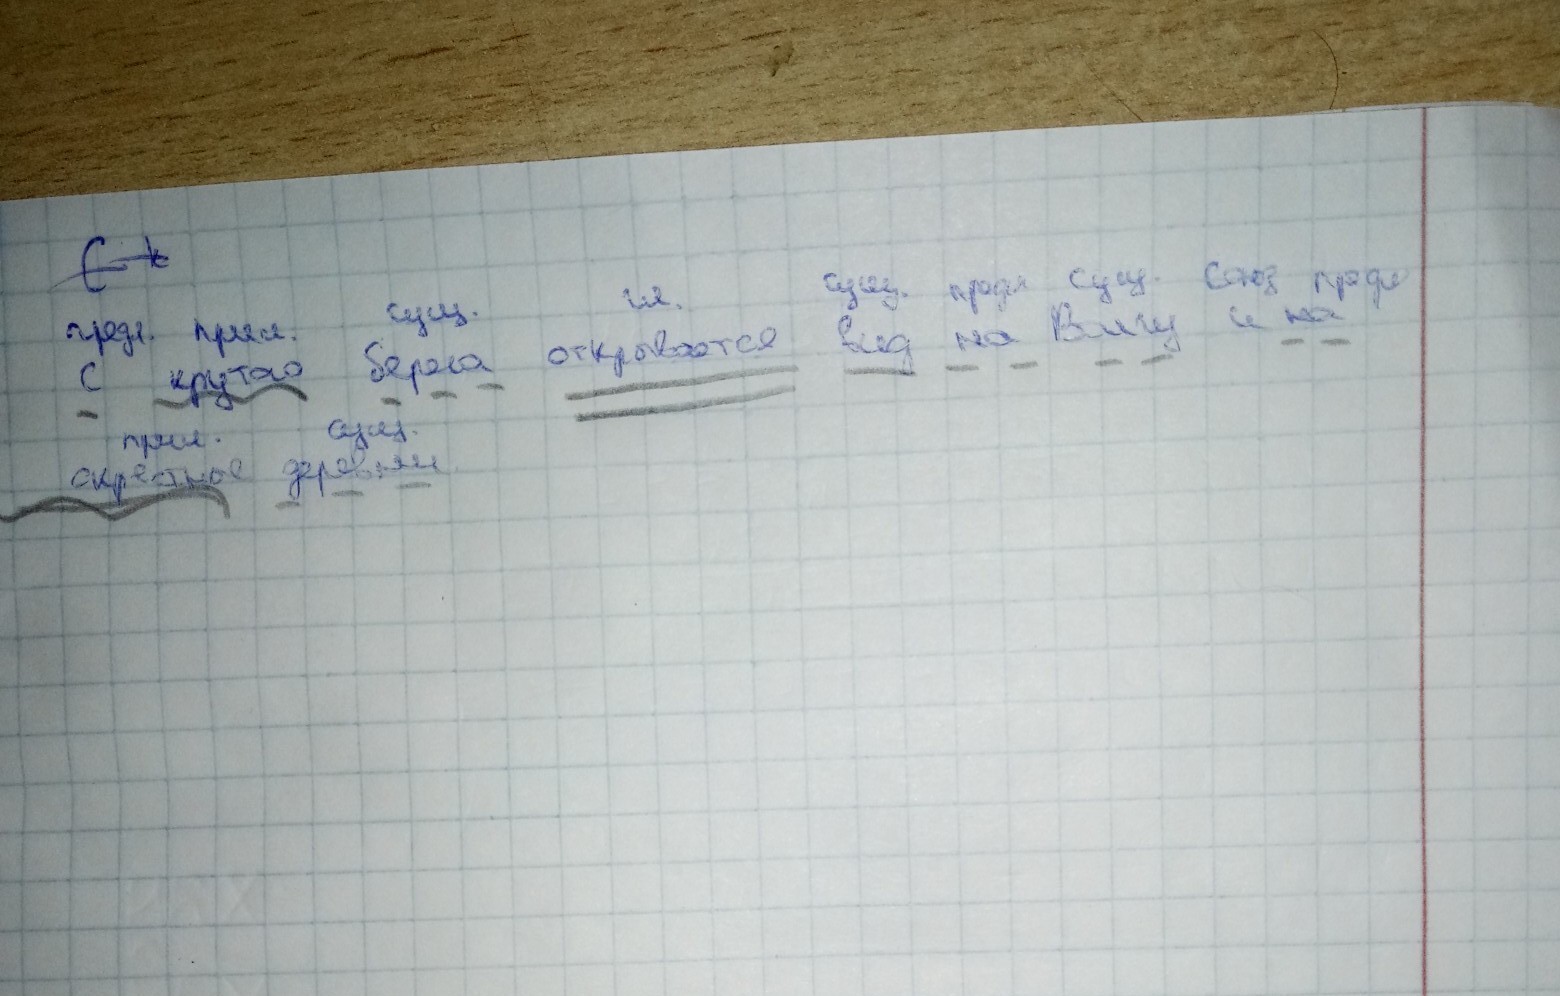 предл. прил. сущ. гл. сущ. предл сущ. союз предл
С крутого берега открывается вид на Волгу и на
прил. сущ.
окрестные деревни